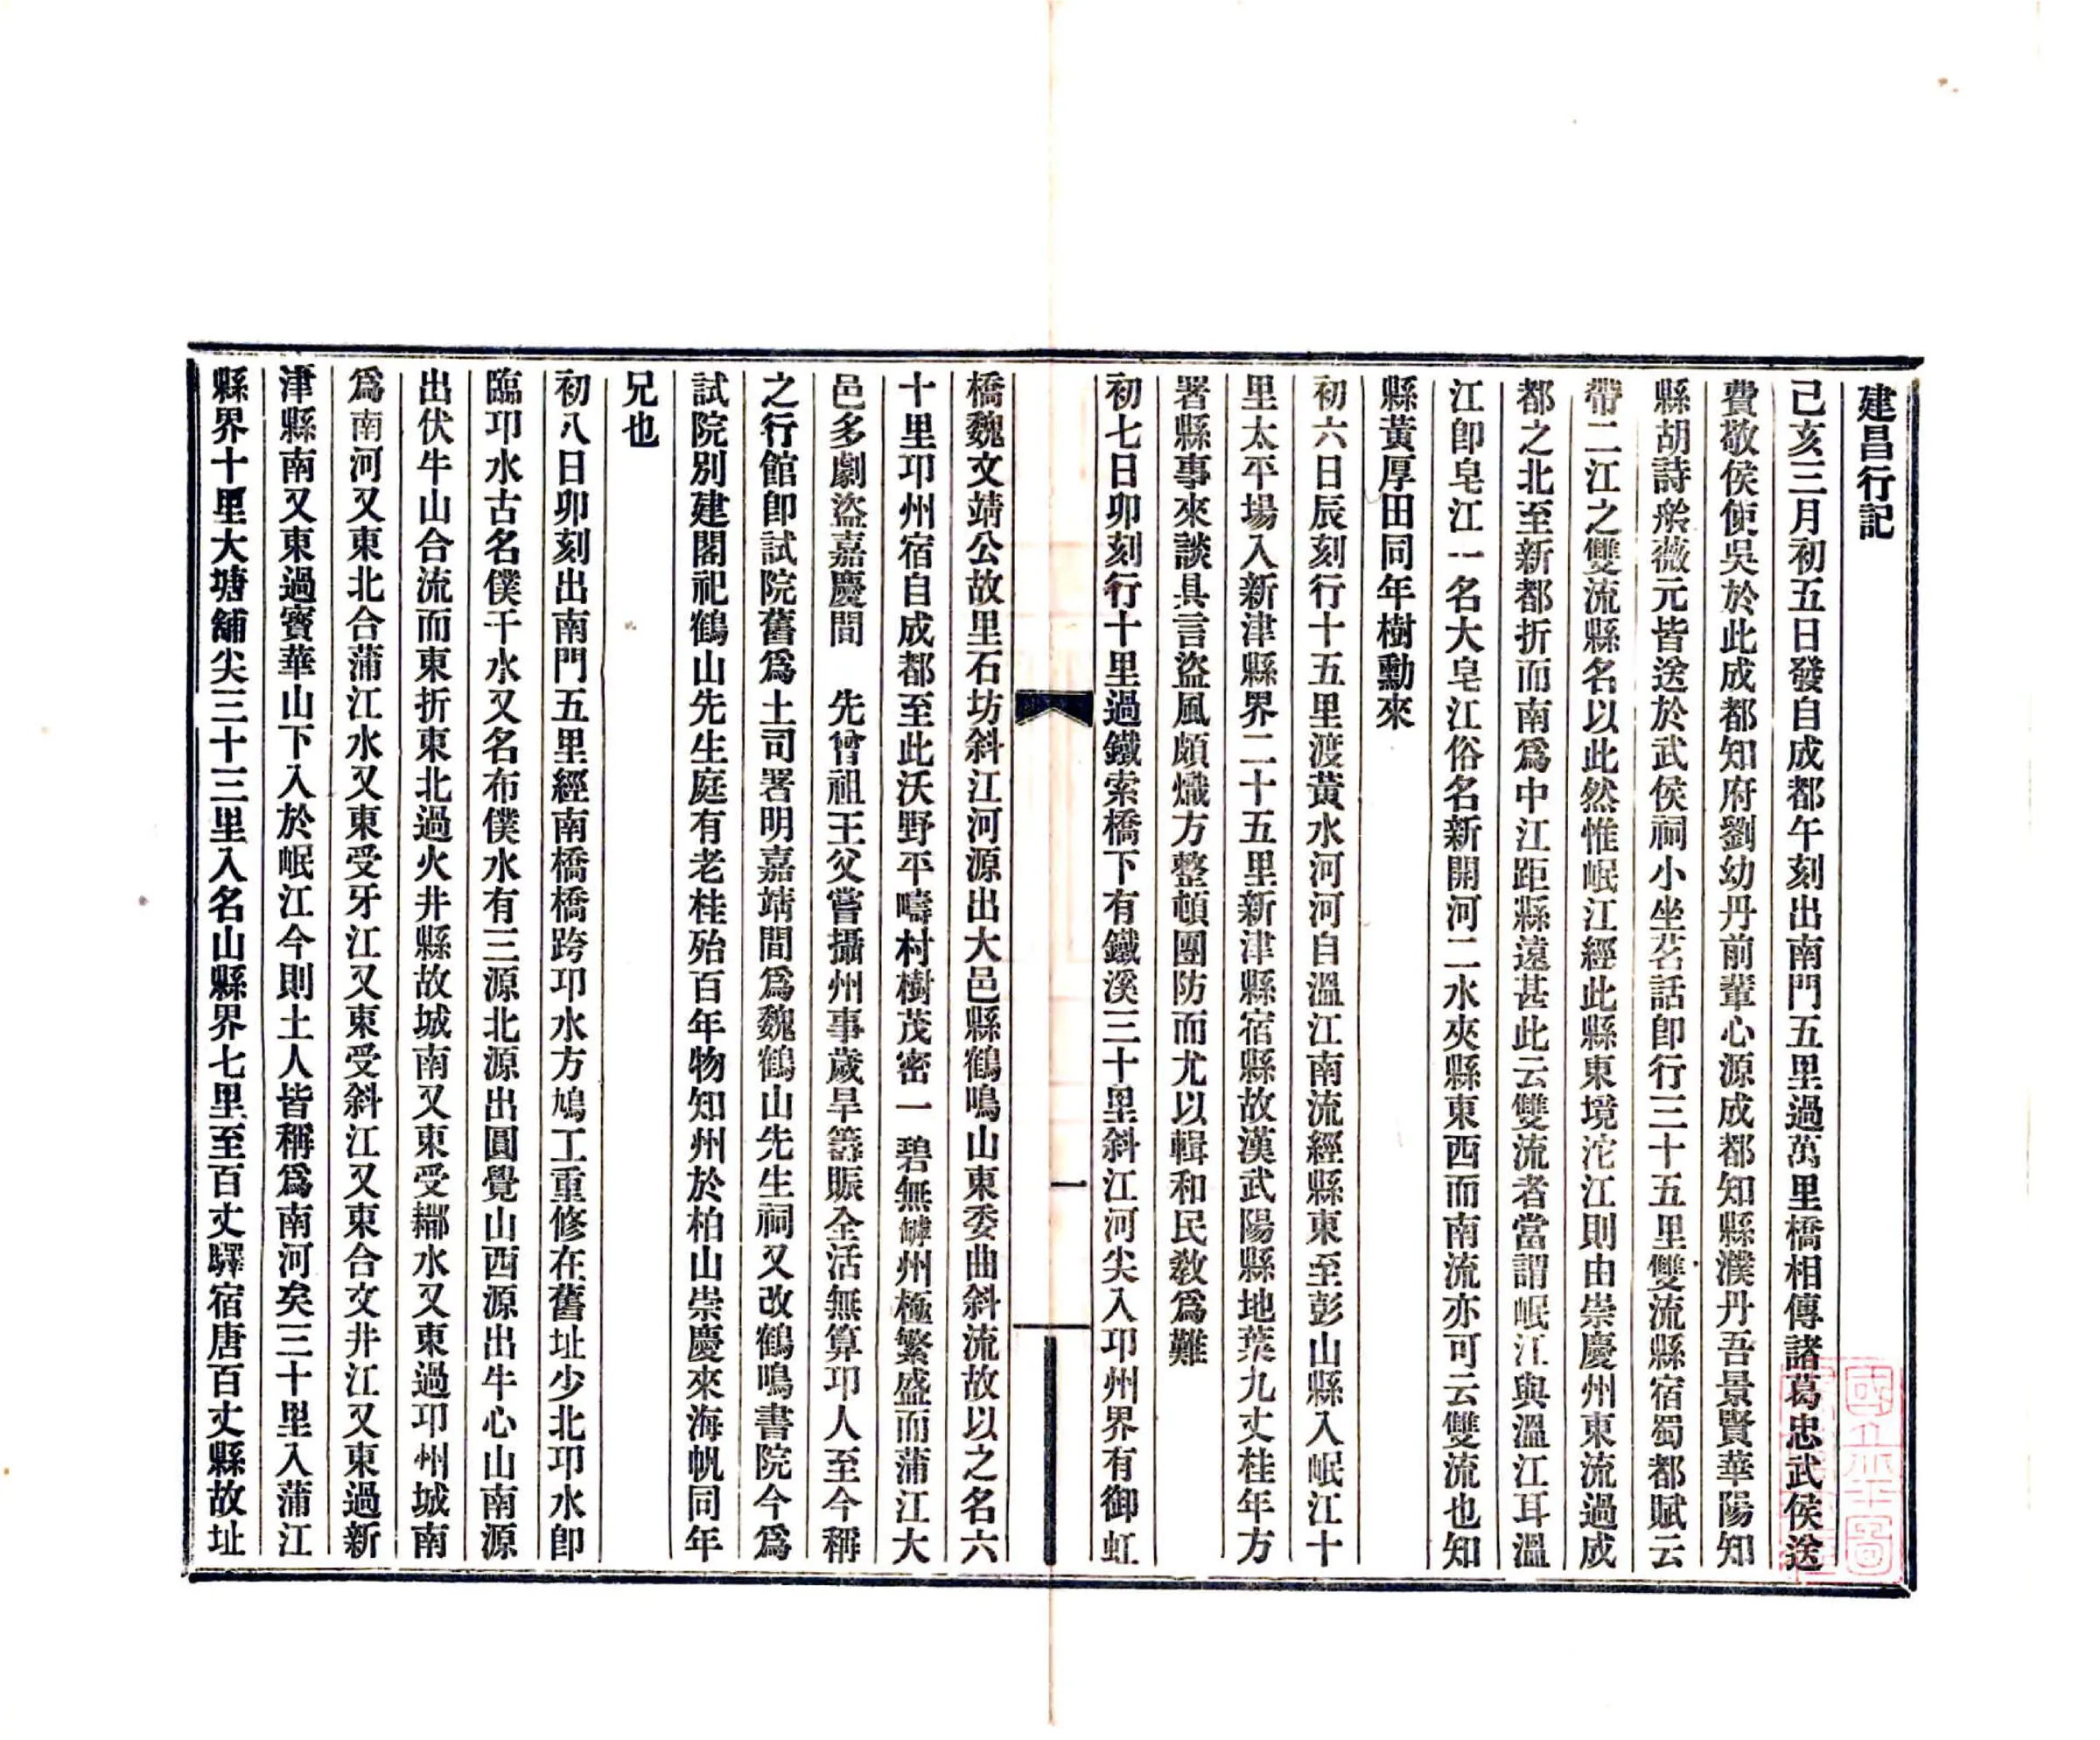 建昌行記
己亥三月初五日發自成都午刻出南門五里過萬里橋相傳諸葛忠武侯送
費敬侯使吳於此成都知府劉幼丹前輩心源成都知縣濮丹吾景賢華陽知
縣胡詩舲薇元皆送於武侯祠小坐茗話卽行三十五里雙流縣宿蜀都賦云
帶二江之雙流縣名以此然惟岷江經此縣東境沱江則由崇慶州東流過成
都之北至新都折而南爲中江距縣遠甚此云雙流者當謂岷江與溫江耳溫
江卽皂江一名大皂江俗名新開河二水夾縣東西而南流亦可云雙流也知
縣黃厚田同年樹勳來
初六日辰刻行十五里渡黃水河河自溫江南流經縣東至彭山縣入岷江十
里太平場入新津縣界二十五里新津縣宿縣故漢武陽縣地葉九丈桂年方
署縣事來談具言盜風頗熾方整頓團防而尤以輯和民敎爲難
初七日卯刻行十里過鐵索橋下有鐵溪三十里斜江河尖入邛州界有御虹
一
橋魏文靖公故里石坊斜江河源出大邑縣鶴鳴山東委曲斜流故以之名六
十里邛州宿自成都至此沃野平疇村樹茂密一碧無罅州極繁盛而蒲江大
邑多劇盜嘉慶間　先曾祖王父嘗攝州事歲旱籌賑全活無算邛人至今稱
之行館卽試院舊爲土司署明嘉靖間爲魏鶴山先生祠又改鶴鳴書院今爲
試院別建閣祀鶴山先生庭有老桂殆百年物知州於柏山崇慶來海帆同年
兄也
初八日卯刻出南門五里經南橋橋跨邛水方鳩工重修在舊址少北邛水卽
臨邛水古名僕千水又名布僕水有三源北源出圓覺山西源出牛心山南源
出伏牛山合流而東折東北過火井縣故城南又東受㵧水又東過邛州城南
爲南河又東北合蒲江水又東受牙江又東受斜江又東合文井江又東過新
津縣南又東過寶華山下入於岷江今則土人皆稱爲南河矣三十里入蒲江
縣界十里大塘舖尖三十三里入名山縣界七里至百丈驛宿唐百丈縣故址